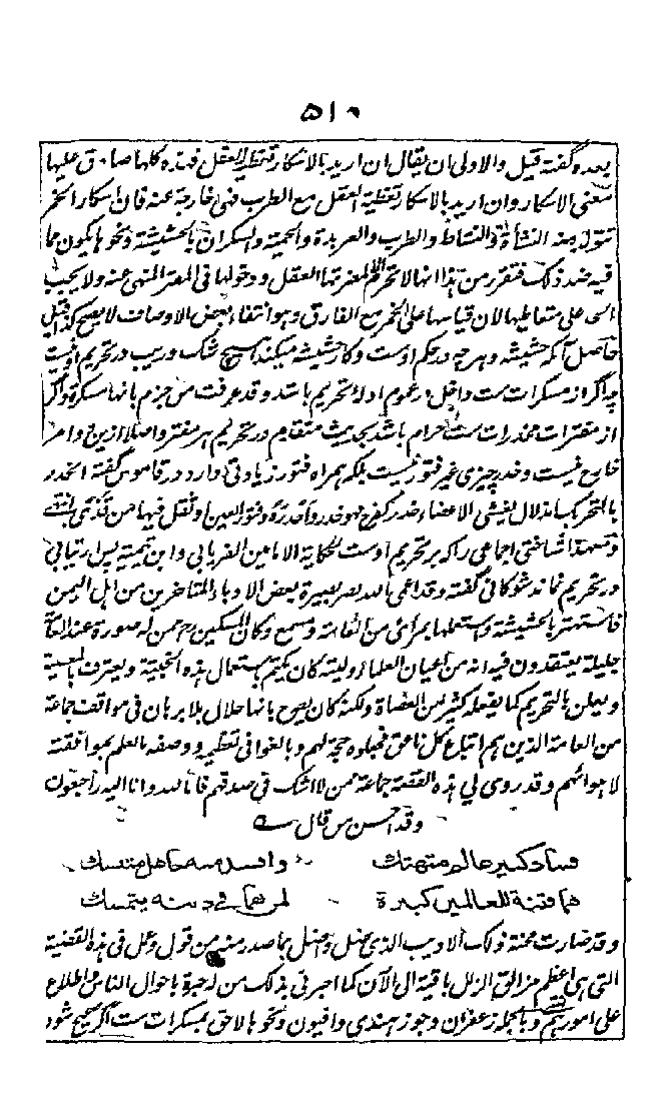 ۵۱۰
بعده گفته قیل والاولی ان یقال ان ارید بالاسکار تغطیة العقل فهذه کلها صادق علیها
معنی الاسکار وان ارید بالاسکار تغطیة العقل مع الطرب فهی خارجة عنه فان اسکار الخمر
تتولد منه النشأة والنشاط والطرب والعربدة والحمیة والسکران بالحشیشة ونحوها یکون مما
فیه ضد ذلک فتقرر من هذا انها لا تحرم الا لمضرتها العقل ودخولها فی المفتر المنهی عنه ولا یجب
الحد علی متعاطیها لان قیاسها علی الخمر مع الفارق وهو انتفاء بعض الاوصاف لا یصح کذا قیل
حاصل آنکه حشیشه و هرچه در حکم اوست و کار حشیشه میکند هیچ شک و ریب در تحریم او نیست
چه اگر از مسکرات ست داخل در عموم ادلهٔ تحریم باشد وقد عرفت من جزم بانها مسکرة واگر
از مفترات مخدرات ست حرام باشد بحدیث متقدم در تحریم هر مفتر و اصلا ازین دو امر
خارج نیست و خدر چیزی غیر فتور نیست بلکه همراه فتور زیادتی دارد در قاموس گفته الخدر
بالتحریک امذلال یغشی الاعضاء خدر کفرح فهو خدر واخدره وفتور العین او ثقل فیها من قذی انتهی
و تعهذا شناختی اجماعی را که بر تحریم اوست لحکایة الامامین القرافی وابن تیمیة پس ارتیابی
در تحریم نماند شوکانی گفته وقد اعمی بالله بصر بصیرة بعض الادباء المتاخرین من اهل الیمن
فاستهتر بالحشیشة واستعملها بمرأی من العامة ومسمع وکان المسکین ممن له صورة عند العامة
جلیلة یعتقدون فیه انه من اعیان العلماء ولیته کان یکتم استعمال هذه الخبیثة ویعترف بالمعصیة
ویعلن بالتحریم کما یفعله کثیر من العصاة ولکنه کان یصرح بانها حلال بلا برهان فی مواقف جماعة
من العامة الذین هم اتباع کل ناعق فجعلوه حجة لهم وبالغوا فی تعظیمه ووصفه بالعلم بموافقته
لاهوائهم وقد روی لی هذه القصة جماعة ممن لا اشک فی صدقهم فانا لله وانا الیه راجعون
وقد احسن من قال
فساد کبیر عالم متهتک وافسد منه جاهل متنسک
هما فتنة للعالمین کبیرة لمن بهما فی دینه یتمسک
وقد صارت محنة ذلک الادیب الذی ضل واضل بما صدر منه من قول وعمل فی هذه القضیة
التی هی اعظم مزالق الزلل باقیة الی الآن کما اخبرنی بذلک من له خبرة باحوال الناس واطلاع
علی امورهم و بالجمله زعفران و جوز هندی و افیون و نحوها لاحق بمسکرات ست اگر صحیح شود